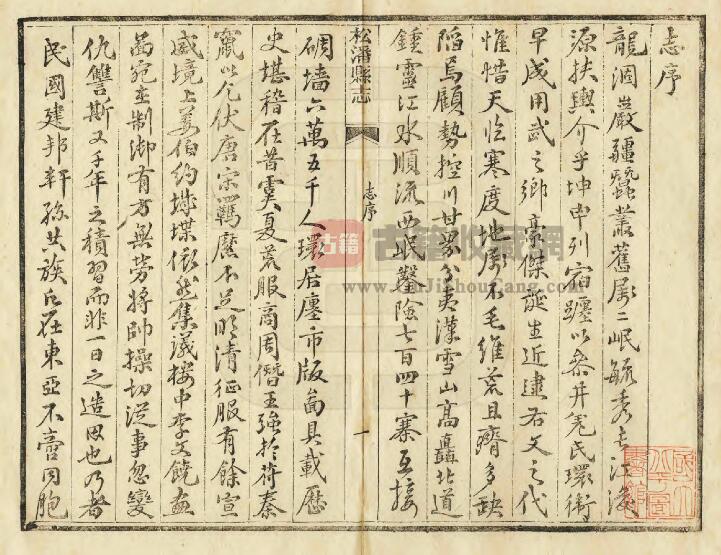 志序
龍涸嚴疆蠶叢舊屬二岷毓秀走江海
源扶輿介乎坤申列宿躔以參井羌民環衛
早成用武之鄉豪傑誕生近逮右文之代
惟惜天臨寒度地屬不毛維荒且瘠多缺
陷焉顧勢控川甘界分夷漢雪山高矗北道
鍾靈江水順流西岷鑿險七百四十寨互接
松潘縣志
志序
一
碉墙六萬五千人環居廛市版圖具載歷
史堪稽在昔虞夏荒服商周僭王強於苻秦
竄以乞伏唐宋羈縻不足明清征服有餘宣
威境上姜伯約雉堞依然集議樓中李文饒畫
圖宛在制御有方無勞將帥操切從事忽變
仇讐斯又千年之積習而非一日之造因也乃者
民國建邦軒孫共族正在東亞不啻同胞
古籍
古籍收藏網
www.GuJiShouCang.com